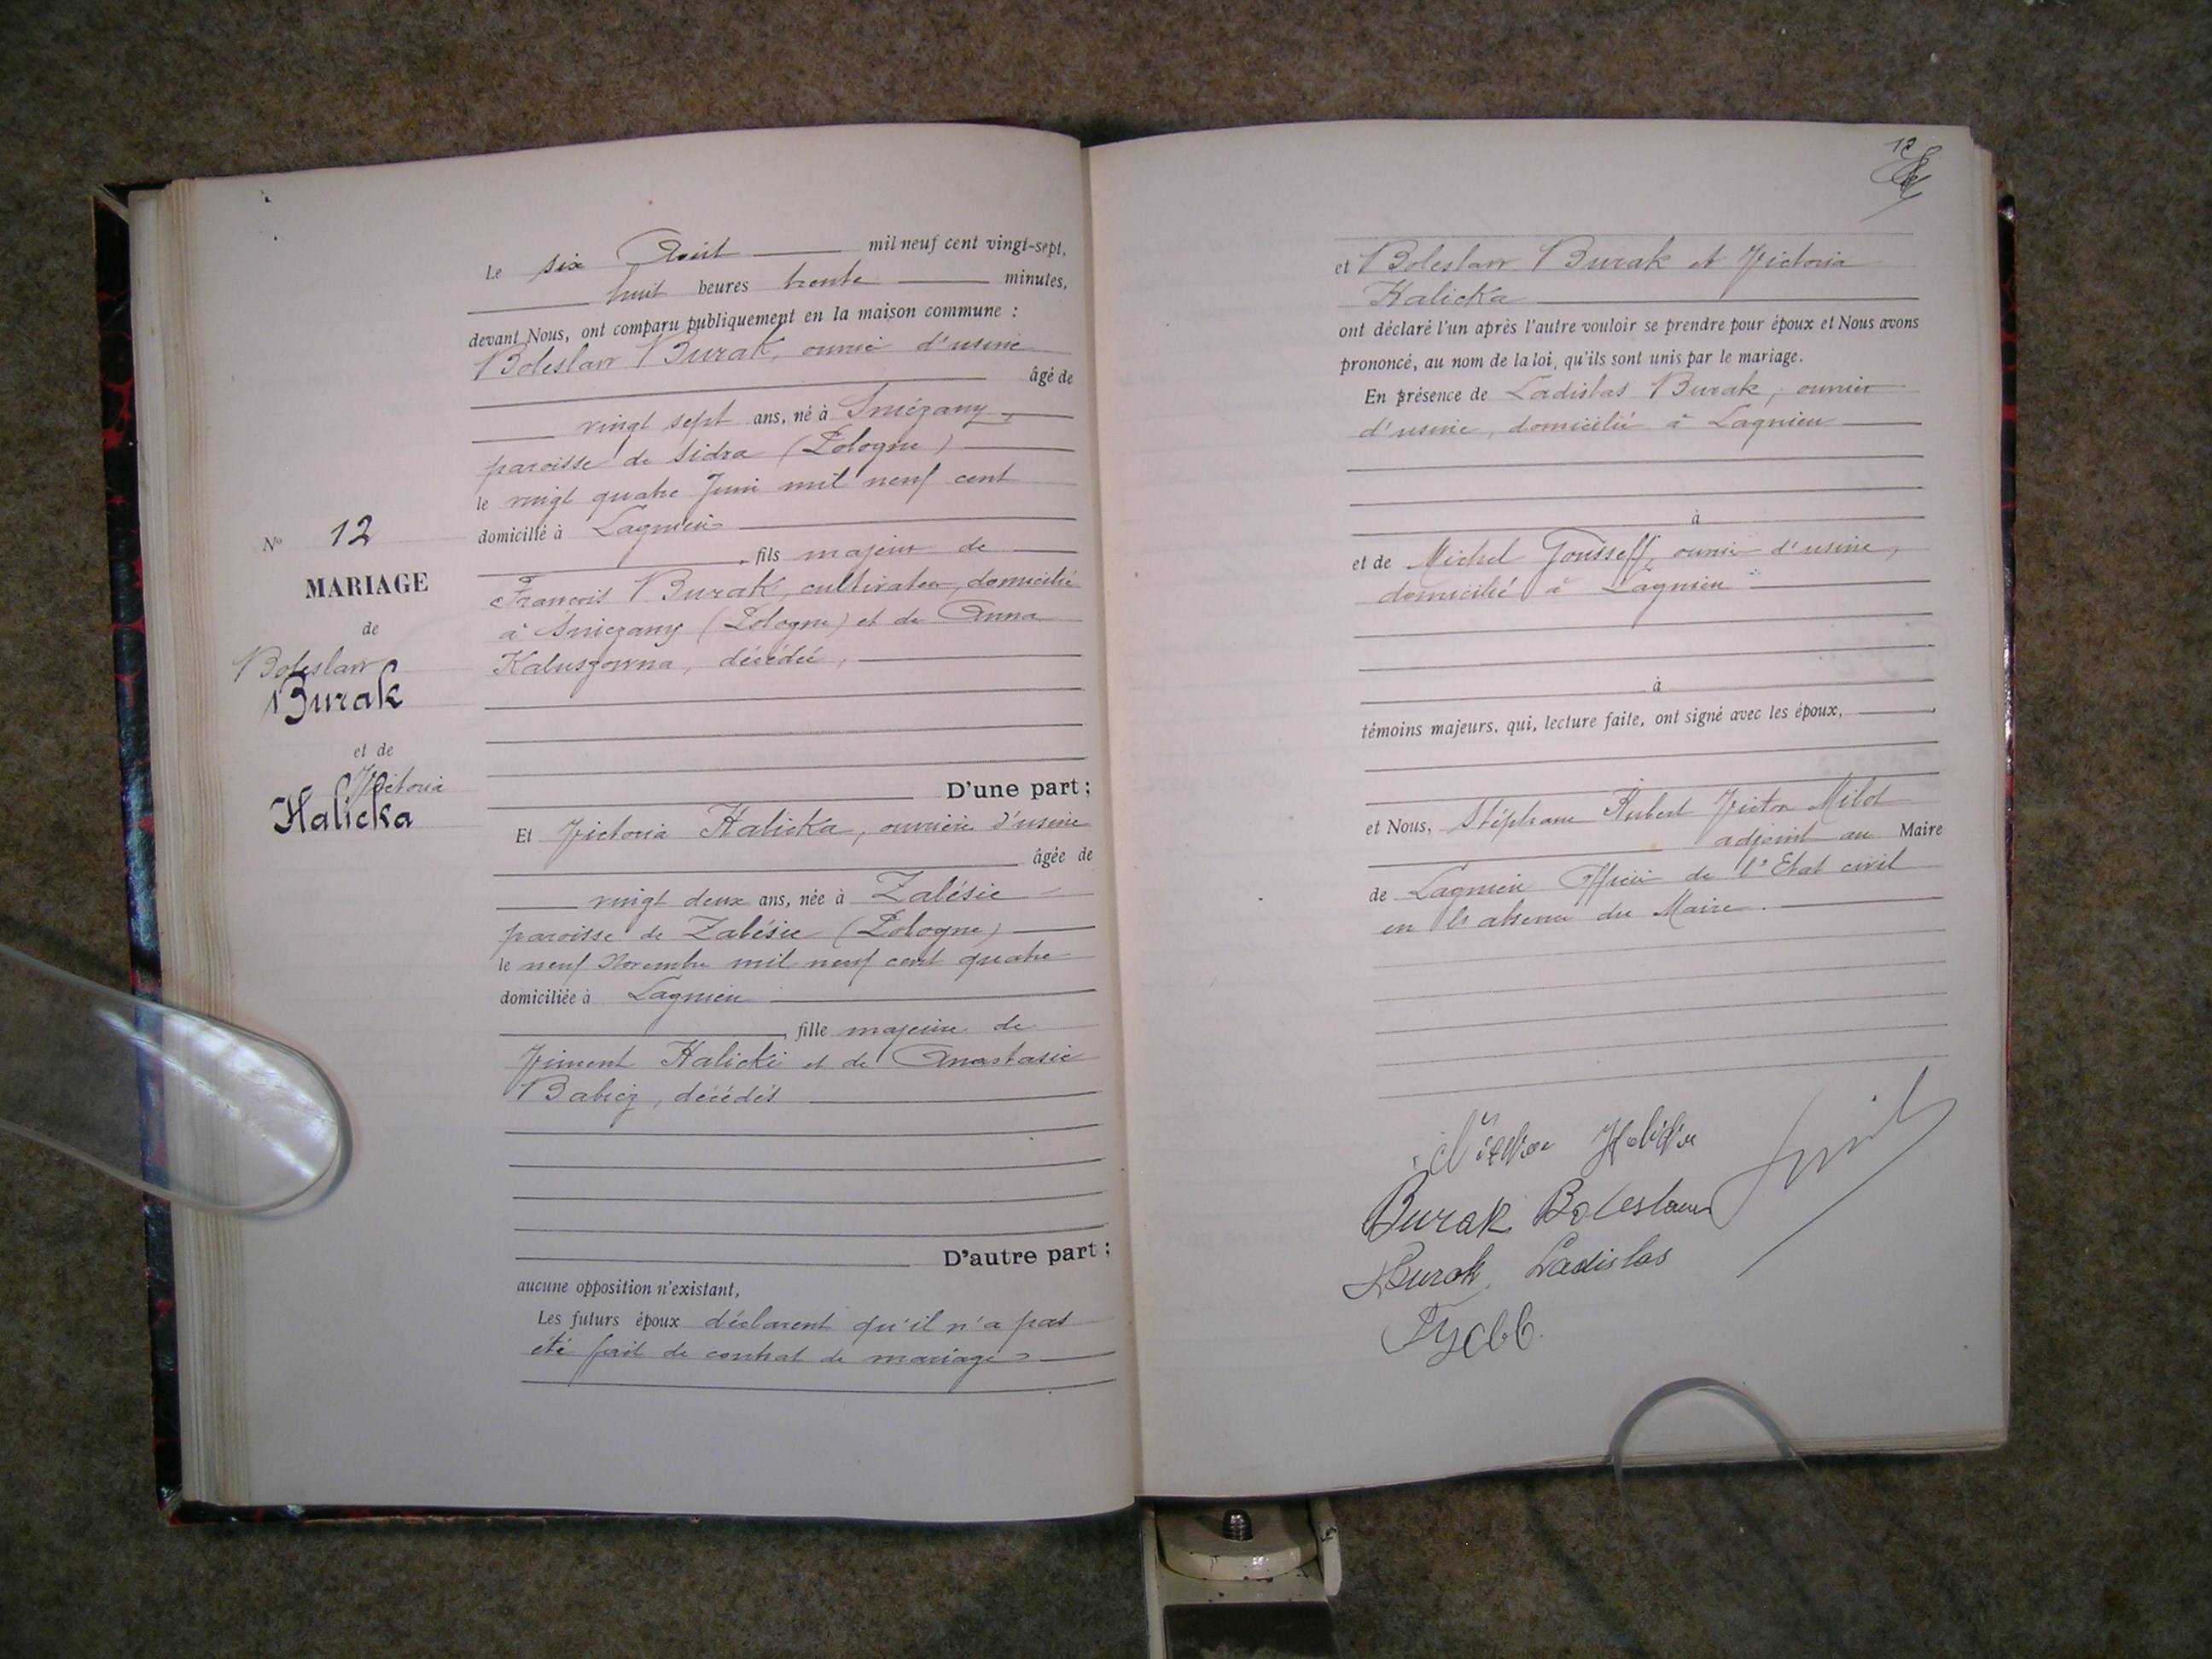 Le six Août mil neuf cent vingt-sept,
huit heures trente minutes,
devant Nous, ont comparu publiquement en la maison commune :
Boleslaw Burak, ouvrier d'usine
âgé de
vingt sept ans, né à Sniézany,
paroisse de Sidra (Pologne)
le vingt quatre Juin mil neuf cent
domicilié à Lagnieu
fils majeur de
François Burak, cultivateur, domicilié
à Sniezany (Pologne) et de Anna
Kaluszowna, décédée,
D'une part ;
Et Victoria Halicka, ouvrière d'usine
âgée de
vingt deux ans, née à Zalésie
paroisse de Zalésie (Pologne)
le neuf Novembre mil neuf cent quatre
domiciliée à Lagnieu
, fille majeure de
Vincent Halicki et de Anastasie
Babicz, décédés
D'autre part ;
aucune opposition n'existant,
Les futurs époux déclarent qu'il n'a pas
été fait de contrat de mariage
Nº 12
MARIAGE
de
Boleslaw
Burak
et de
Victoria
Halicka
12
et Boleslaw Burak et Victoria
Halicka
ont déclaré l'un après l'autre vouloir se prendre pour époux et Nous avons
prononcé, au nom de la loi, qu'ils sont unis par le mariage.
En présence de Ladislas Burak, ouvrier
d'usine, domicilié à Lagnieu
à
et de Michel Gousseff, ouvrier d'usine,
domicilié à Lagnieu
à
témoins majeurs, qui, lecture faite, ont signé avec les époux,
et Nous, Stéphane Hubert Victor Milot
adjoint au Maire
de Lagnieu Officier de l'Etat civil
en l'absence du Maire.
Burak Boleslaw
Burak Ladislas